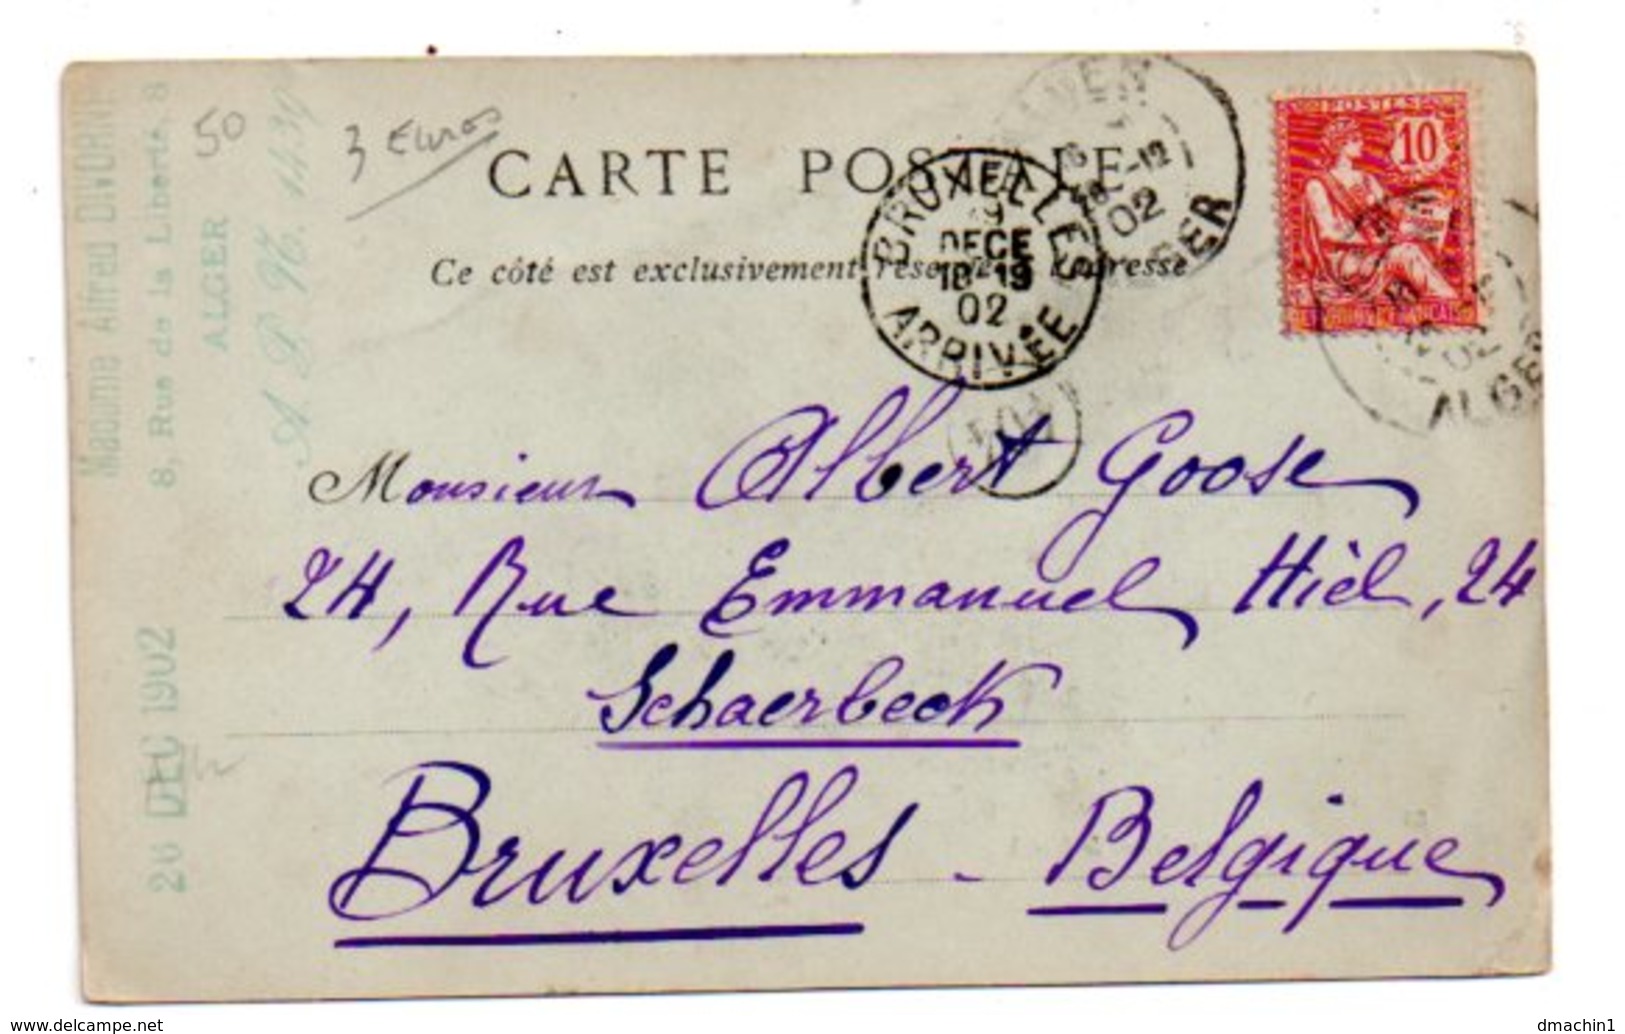 50
3 Euros
CARTE POSTALE
Ce côté est exclusivement réservé à l'adresse
BRUXELLES
19
DECE
18-19
02
ARRIVÉE
-12
02
ALGER
POSTES
10
02
ALGER
Monsieur Albert Goose
24, Rue Emmanuel Hièl, 24
Schaerbeek
Bruxelles - Belgique
Madame Alfred DIVORNE
8, Rue de la Liberté, 8
ALGER
26 DEC 1902
www.delcampe.net
dmachin1